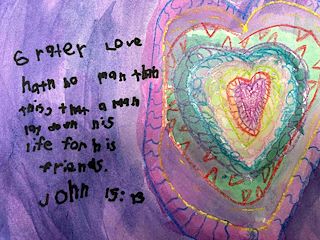 Grater Love
hath no man than
this, that a man
lay down his
life for his
friends.
John 15:13